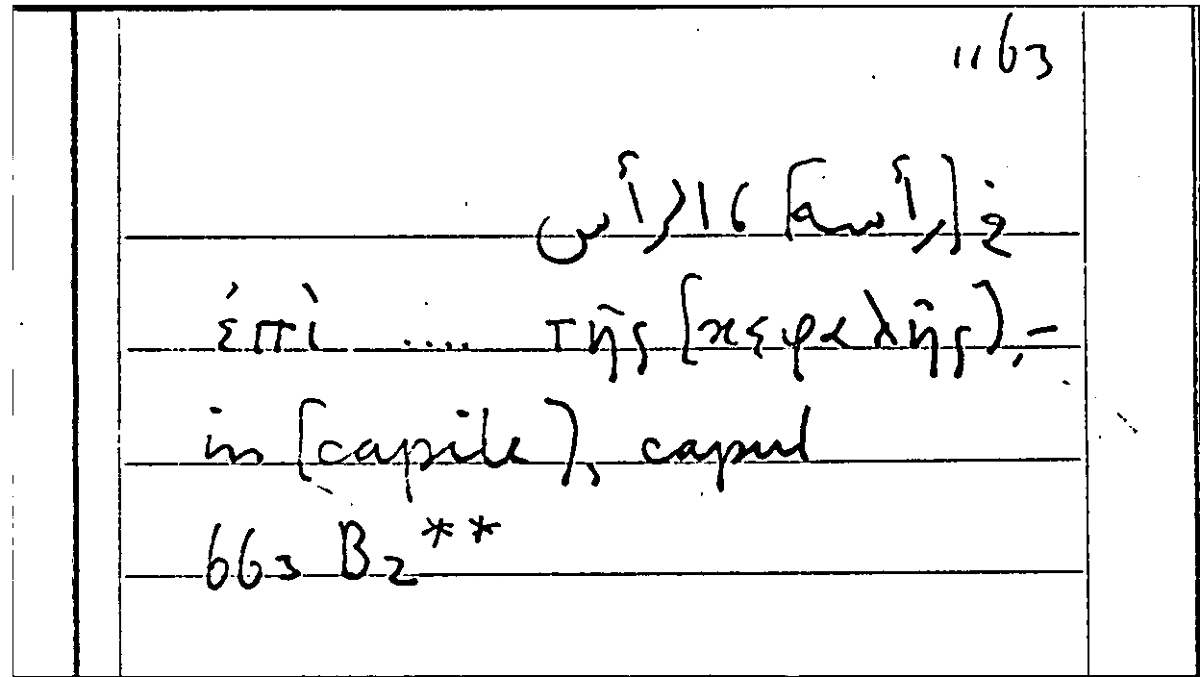 1163
في [رأسه] الرأس
ἐπὶ .... τῆς [κεφαλῆς], -
in [capite], caput
663 B2**